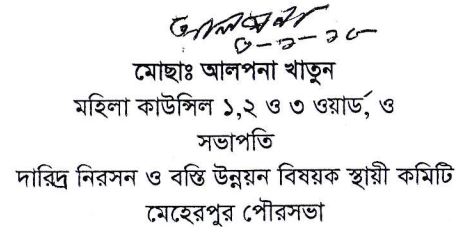 আলপনা
৩-২-১৩
মোছাঃ আলপনা খাতুন
মহিলা কাউন্সিল ১,২ ও ৩ ওয়ার্ড, ও
সভাপতি
দারিদ্র নিরসন ও বস্তি উন্নয়ন বিষয়ক স্থায়ী কমিটি
মেহেরপুর পৌরসভা